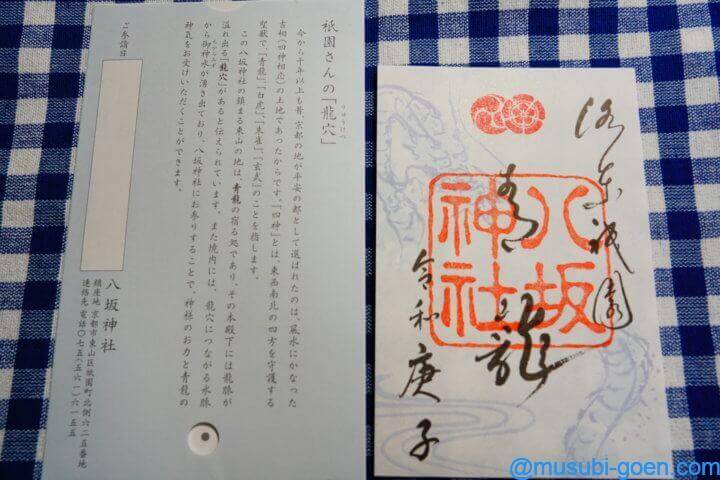 祇園さんの『龍穴』
りゅうけつ
今から千年以上も昔、京都の地が平安の都として選ばれたのは、風水にかなった
吉相(四神相応)の土地であったからです。「四神」とは、東西南北の四方を守護する
聖獣で、「青龍」「白虎」「朱雀」「玄武」のことを指します。
この八坂神社の鎮まる東山の地は、青龍の宿る処であり、その本殿下には龍脈が
溢れ出る「龍穴」があると伝えられています。また境内には、龍穴につながる水脈
から御神水が湧き出ており、八坂神社にお参りすることで、神様のお力と青龍の
神気をお受けいただくことができます。
ご参詣日
八坂神社
鎮座地 京都市東山区祇園町北側六二五番地
連絡先 電話〇七五(五六一)六一五五
洛東祇園
青龍
八坂
神社
令和庚子
@musubi-goen.com